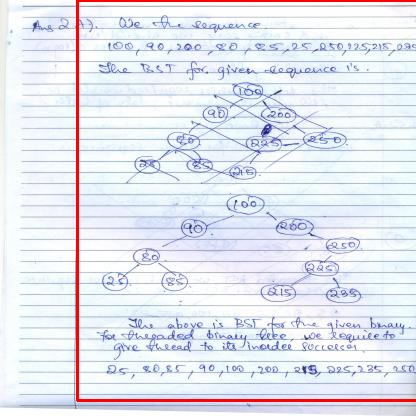 Ans 2 A). We the sequence.
100, 90, 200, 80, 85, 25, 250, 225, 215, 235
The BST for given sequence is.
100
90 200
80 225 250
25 85 215
100
90 200
80 250
25 85 225
215 235
The above is BST for the given binary.
For threaded binary tree, we require to
give thread to its inorder successor.
25, 80, 85, 90, 100, 200, 215, 225, 235, 250